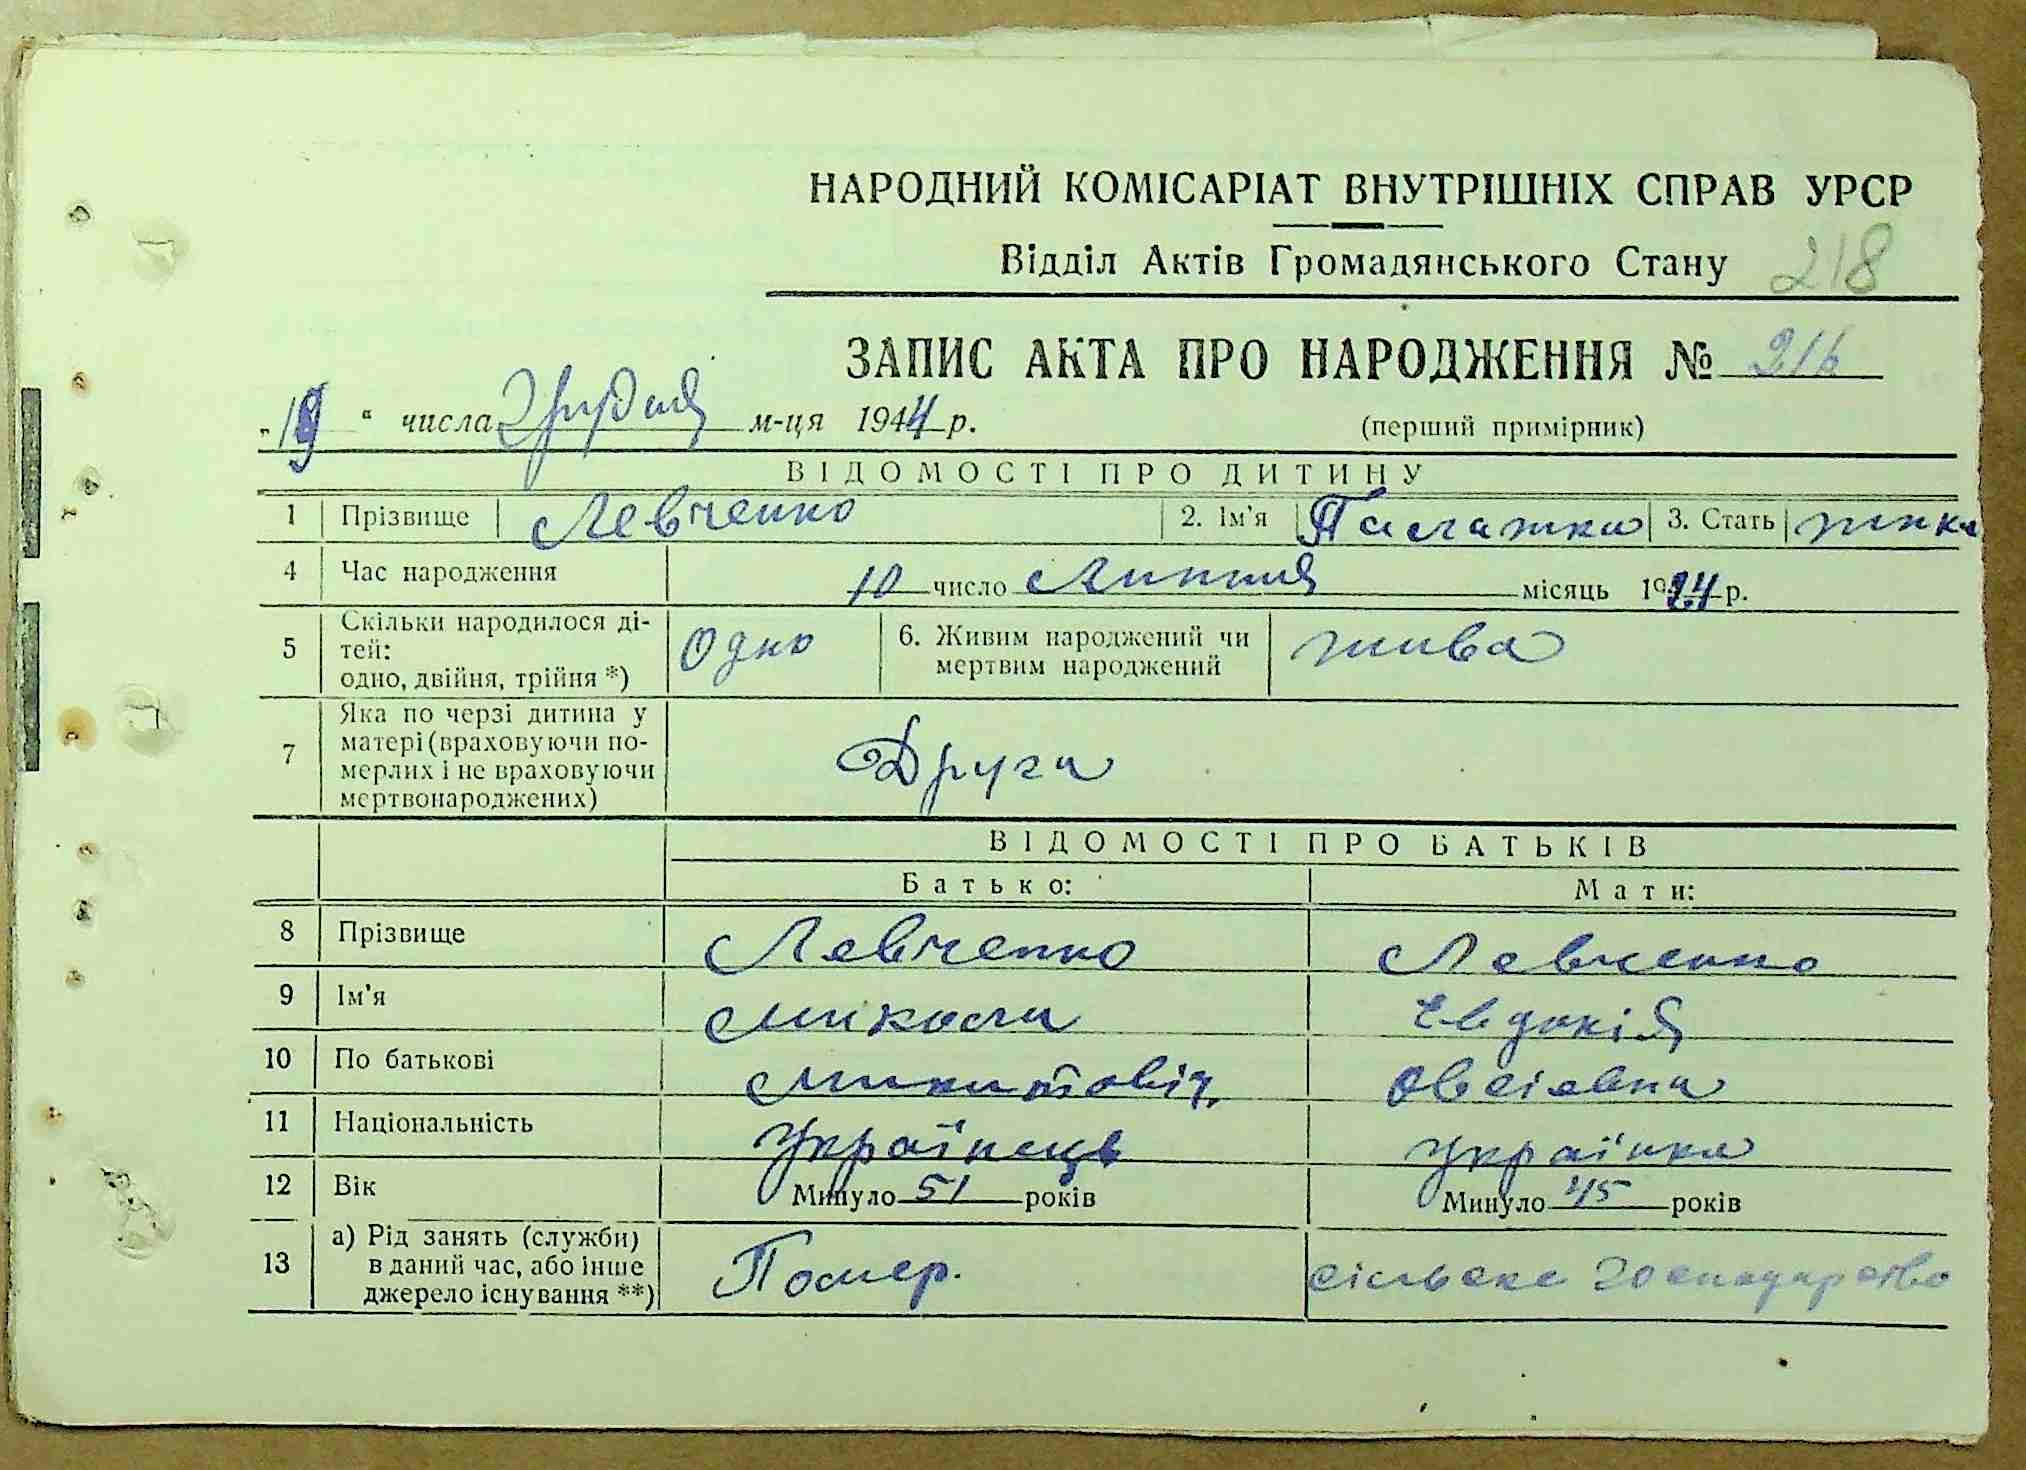 НАРОДНИЙ КОМІСАРІАТ ВНУТРІШНІХ СПРАВ УРСР
Відділ Актів Громадянського Стану 218
ЗАПИС АКТА ПРО НАРОДЖЕННЯ № 216
„19“ числа Грудня м-ця 1944 р. (перший примірник)
ВІДОМОСТІ ПРО ДИТИНУ
1 Прізвище Левченко 2. Ім'я Палажка 3. Стать жінка
4 Час народження 10 число Липня місяць 1924 р.
5 Скільки народилося ді-
тей:
одно, двійня, трійня *) Одно 6. Живим народжений чи
мертвим народжений жива
7 Яка по черзі дитина у
матері (враховуючи по-
мерлих і не враховуючи
мертвонароджених) Друга
ВІДОМОСТІ ПРО БАТЬКІВ
Батько: Мати:
8 Прізвище Левченко Левченко
9 Ім'я Микола Евдокія
10 По батькові Микитовіч Овсіевна
11 Національність Українець українка
12 Вік Минуло 51 років Минуло 45 років
13 а) Рід занять (служби)
в даний час, або інше
джерело існування **) Помер. сільске господарство